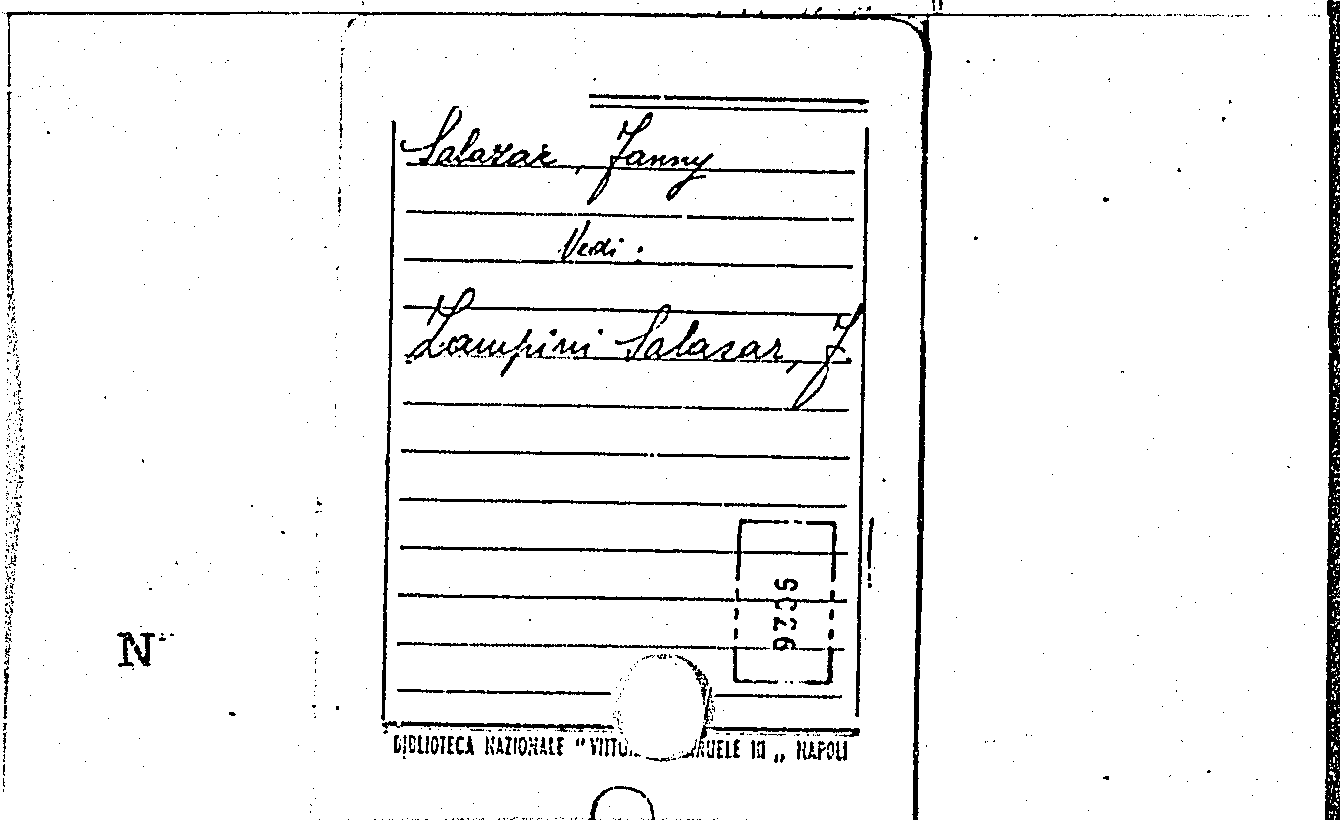 Salazar, Fanny
Vedi:
Zampini Salasar, F.
N
BIBLIOTECA NAZIONALE " VITTO RUELE III „ NAPOLI